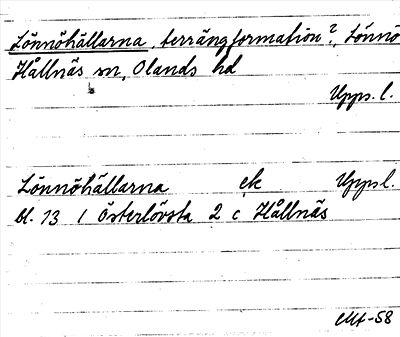 Lönnöhällarna, terrängformation?, Lönnö
Hållnäs sn, Olands hd
Upps. l.
Lönnöhällarna ek Upps l.
bl. 13 1 Österlövsta 2 c Hållnäs
-58